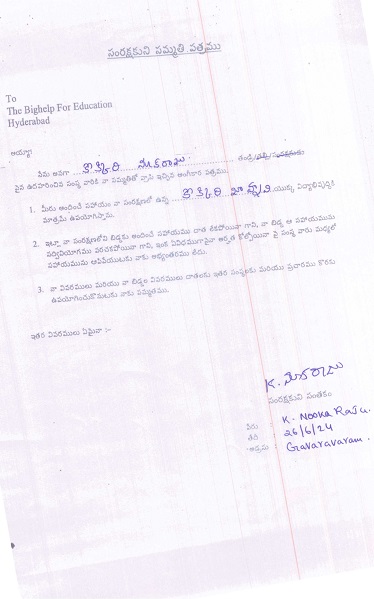 సంరక్షకుని సమ్మతి పత్రము
To
The Bighelp For Education
Hyderabad
అయ్యా
నేను అనగా ... కొక్కిరి నూకరాజు ... తండ్రి/తల్లి/సంరక్షకుడు
పైన ఉదహరించిన సంస్థ వారికి నా సమ్మతితో వ్రాసి ఇచ్చిన అంగీకార పత్రము.
1. మీరు అందించే సహాయం నా సంరక్షణలో ఉన్న ... కొక్కిరి జాహ్నవి యొక్క విద్యాభివృద్ధికి
మాత్రమే ఉపయోగిస్తాను.
2. ఇట్లా నా సంరక్షణలోని బిడ్డకు అందించే సహాయము దాత లేకపోయినా గాని, నా బిడ్డ ఆ సహాయమును
సద్వినియోగము పరచకపోయినా గాని, ఇంక ఏవిధముగానైనా అర్హత కోల్పోయినా పై సంస్థ వారు మధ్యలో
సహాయమును ఆపివేయుటకు నాకు అభ్యంతరము లేదు.
3. నా వివరములు మరియు నా బిడ్డ వివరములు దాతలకు ఇతర సంస్థలకు మరియు ప్రచారము కొరకు
ఉపయోగించుకొనుటకు నాకు సమ్మతము.
ఇతర వివరములు ఏమైనా :-
K. నూకరాజు
సంరక్షకుని సంతకం
పేరు : K. Nooka Raju.
తేది : 26/6/24
అడ్రసు : Gavaravaram.